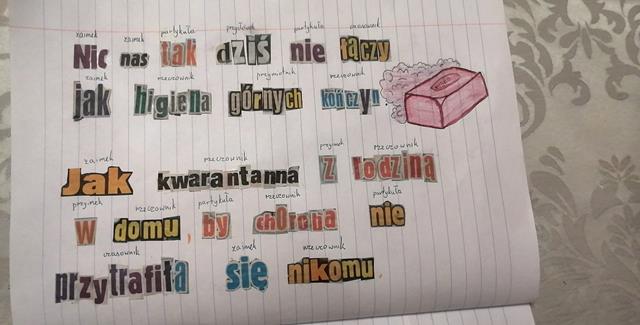 zaimek zaimek partykuła przysłówek partykuła czasownik
Nic nas tak dziś nie łączy
zaimek rzeczownik przymiotnik rzeczownik
jak higiena górnych kończyn
zaimek rzeczownik przyimek rzeczownik
Jak kwarantanna z rodziną
przyimek rzeczownik partykuła rzeczownik partykuła
w domu, by choroba nie
czasownik zaimek rzeczownik
przytrafiła się nikomu.